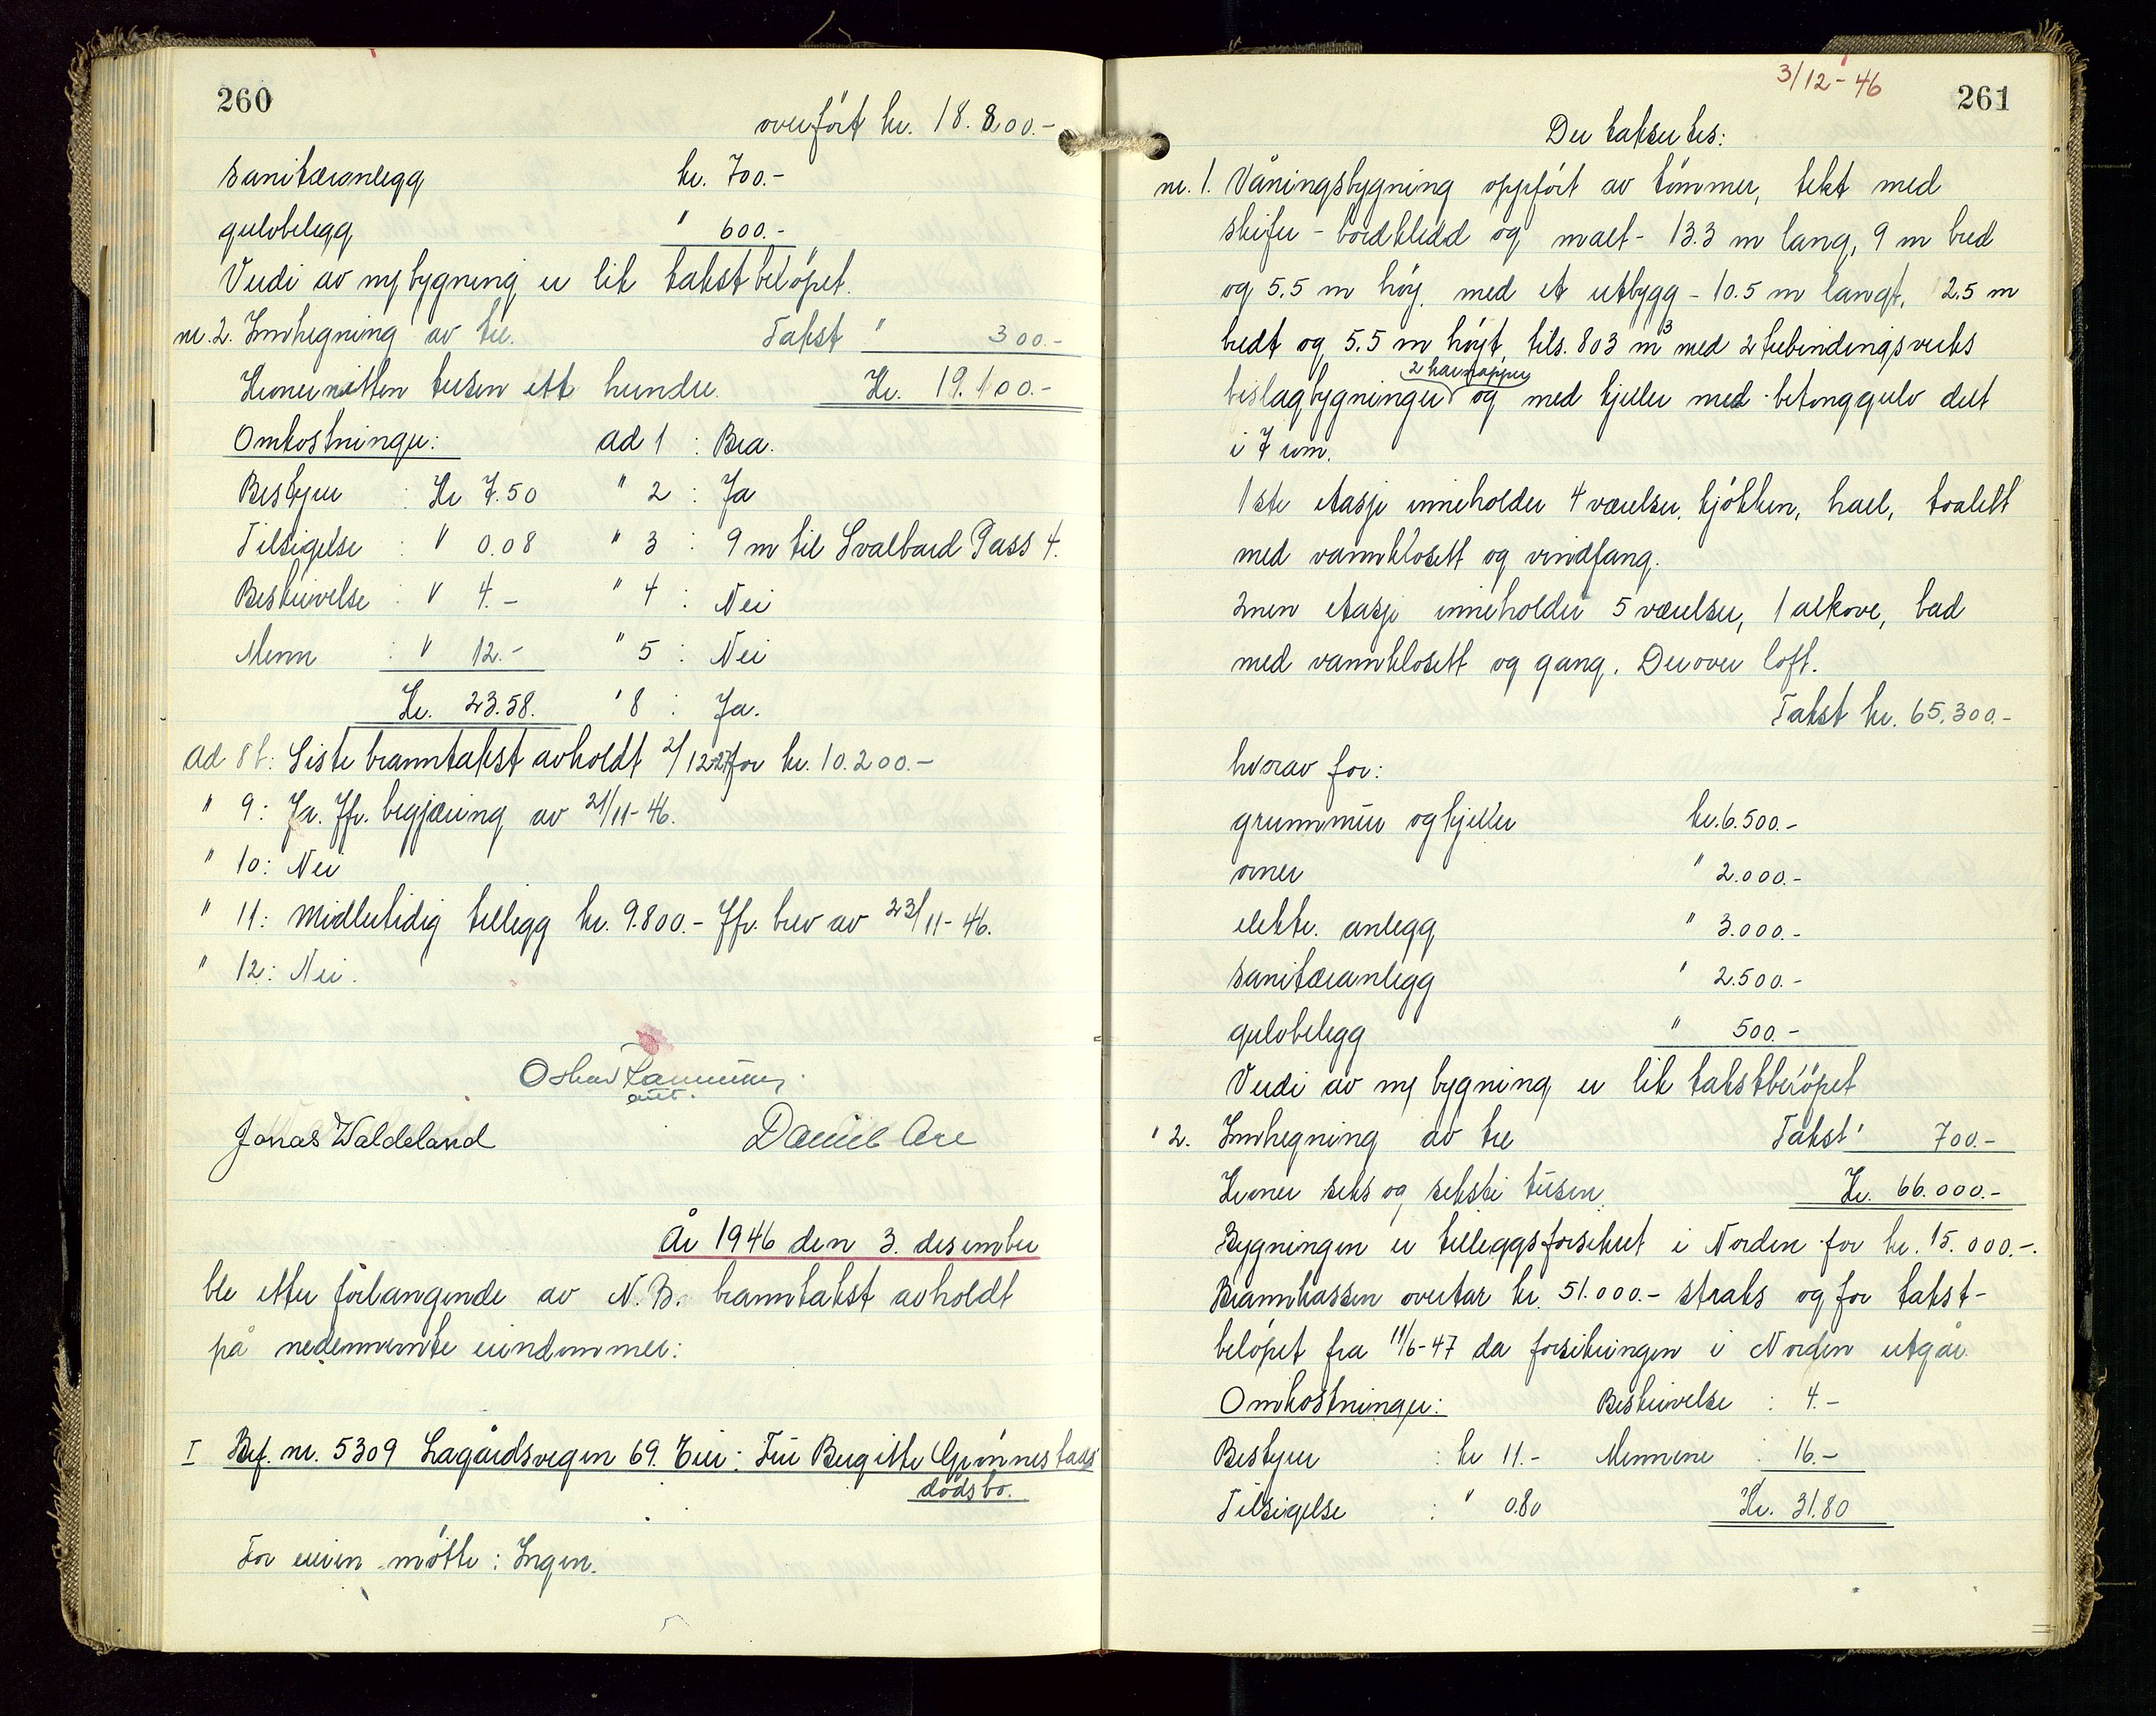 260
overført kr. 18.800.-
Sanitæranlegg kr. 700.-
gulvbelegg " 600.-
Verdi av ny bygning er lik takstbeløpet.
nr. 2. Innhegning av tre. Takst " 300.-
Kroner nitten tusen ett hundre. Kr. 19.100.-
Omkostninger: ad 1 : Bra.
Bestyrer : Kr 7.50 " 2 : Ja
Tilsigelse : " 0.08 " 3 : 9 m til Svalbard Pass 4.
Beskrivelse : " 4.- " 4 : Nei
Menn : " 12.- " 5 : Nei
Kr. 23.58. " 8 : Ja.
ad 8 b: Siste branntakst avholdt 2/12-27 for kr. 10.200.-
" 9: Ja. Jfr. begjæring av 21/11-46.
" 10: Nei
" 11: Midlertidig tillegg kr. 9.800.- Jfr. brev av 23/11-46.
" 12: Nei.
Oskar
Jonas Waldeland Daniel Are
År 1946 den 3. desember
ble etter forlangende av N.B. branntakst avholdt
på nedennevnte eiendommer:
I Brf. nr. 5309 Lagårdsvegen 69. Eier: Fru Bergitte Grønnestads
dødsbo.
For eieren møtte: Ingen.
3/12-46
261
Der takseres:
nr. 1. Våningsbygning oppført av tømmer, tekt med
skifer - bordkledd og malt - 13.3 m lang, 9 m bred
og 5.5 m høy, med et utbygg - 10.5 m langt, 2.5 m
bredt og 5.5 m høyt, tils. 803 m³ med 2 trebindingsverks
2 karnapper
beslagbygninger og med kjeller med betonggulv delt
i 7 rom.
1ste etasje inneholder 4 værelser, kjøkken, hall, toalett
med vannklosett og vindfang.
2nen etasje inneholder 5 værelser, 1 alkove, bad
med vannklosett og gang. Derover loft.
Takst kr. 65.300.-
hvorav for:
grunnmur og kjeller kr. 6.500.-
ovner " 2.000.-
elektr. anlegg " 3.000.-
Sanitæranlegg " 2.500.-
gulvbelegg " 500.-
Verdi av ny bygning er lik takstbeløpet
" 2. Innhegning av tre Takst " 700.-
Kroner seks og seksti tusen. Kr. 66.000.-
Bygningen er tilleggsforsikret i Norden for kr. 15.000.-.
Brannkassen overtar kr. 51.000.- straks og for takst-
beløpet fra 11/6-47 da forsikringen i Norden utgår.
Omkostninger: Beskrivelse : 4.-
Bestyrer : kr 11.- Mennene : 16.-
Tilsigelse : " 0.80 Kr. 31.80